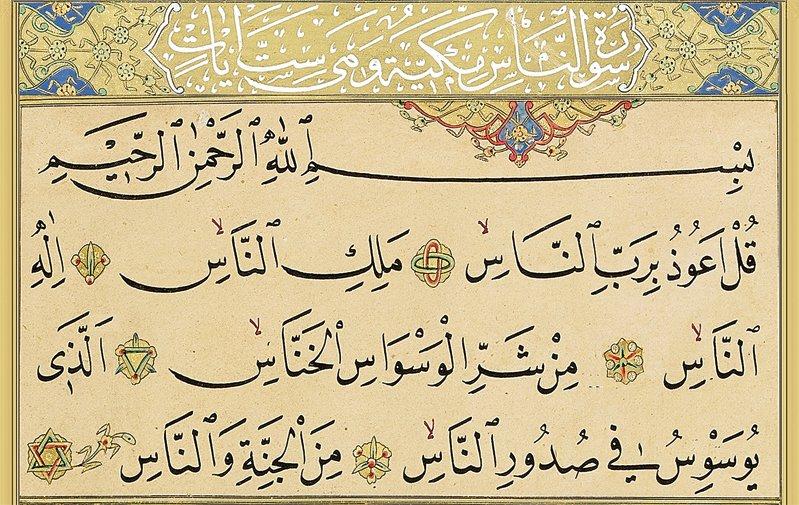 سُورَةُ النَّاسِ مَكِّيَّةٌ وَهِيَ سِتُّ آيَاتٍ
بِسْمِ ٱللّٰهِ ٱلرَّحْمٰنِ ٱلرَّح۪يمِ
قُلْ اَعُوذُ بِرَبِّ ٱلنَّاسِۙ مَلِكِ ٱلنَّاسِۙ اِلٰهِ
ٱلنَّاسِۙ مِنْ شَرِّ الْوَسْوَاسِ الْخَنَّاسِۙ اَلَّذ۪ى
يُوَسْوِسُ ف۪ى صُدُورِ ٱلنَّاسِۙ مِنَ الْجِنَّةِ وَٱلنَّاسِ